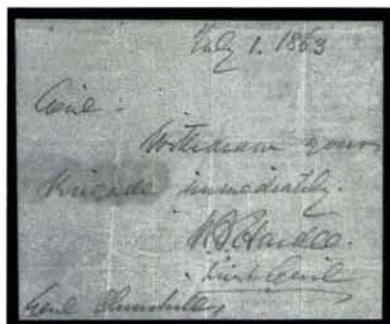 July 1. 1863
Genl:
Withdraw your
Brigade immediately.
W J Hardee.
Lieut Genl
Genl Churchill,